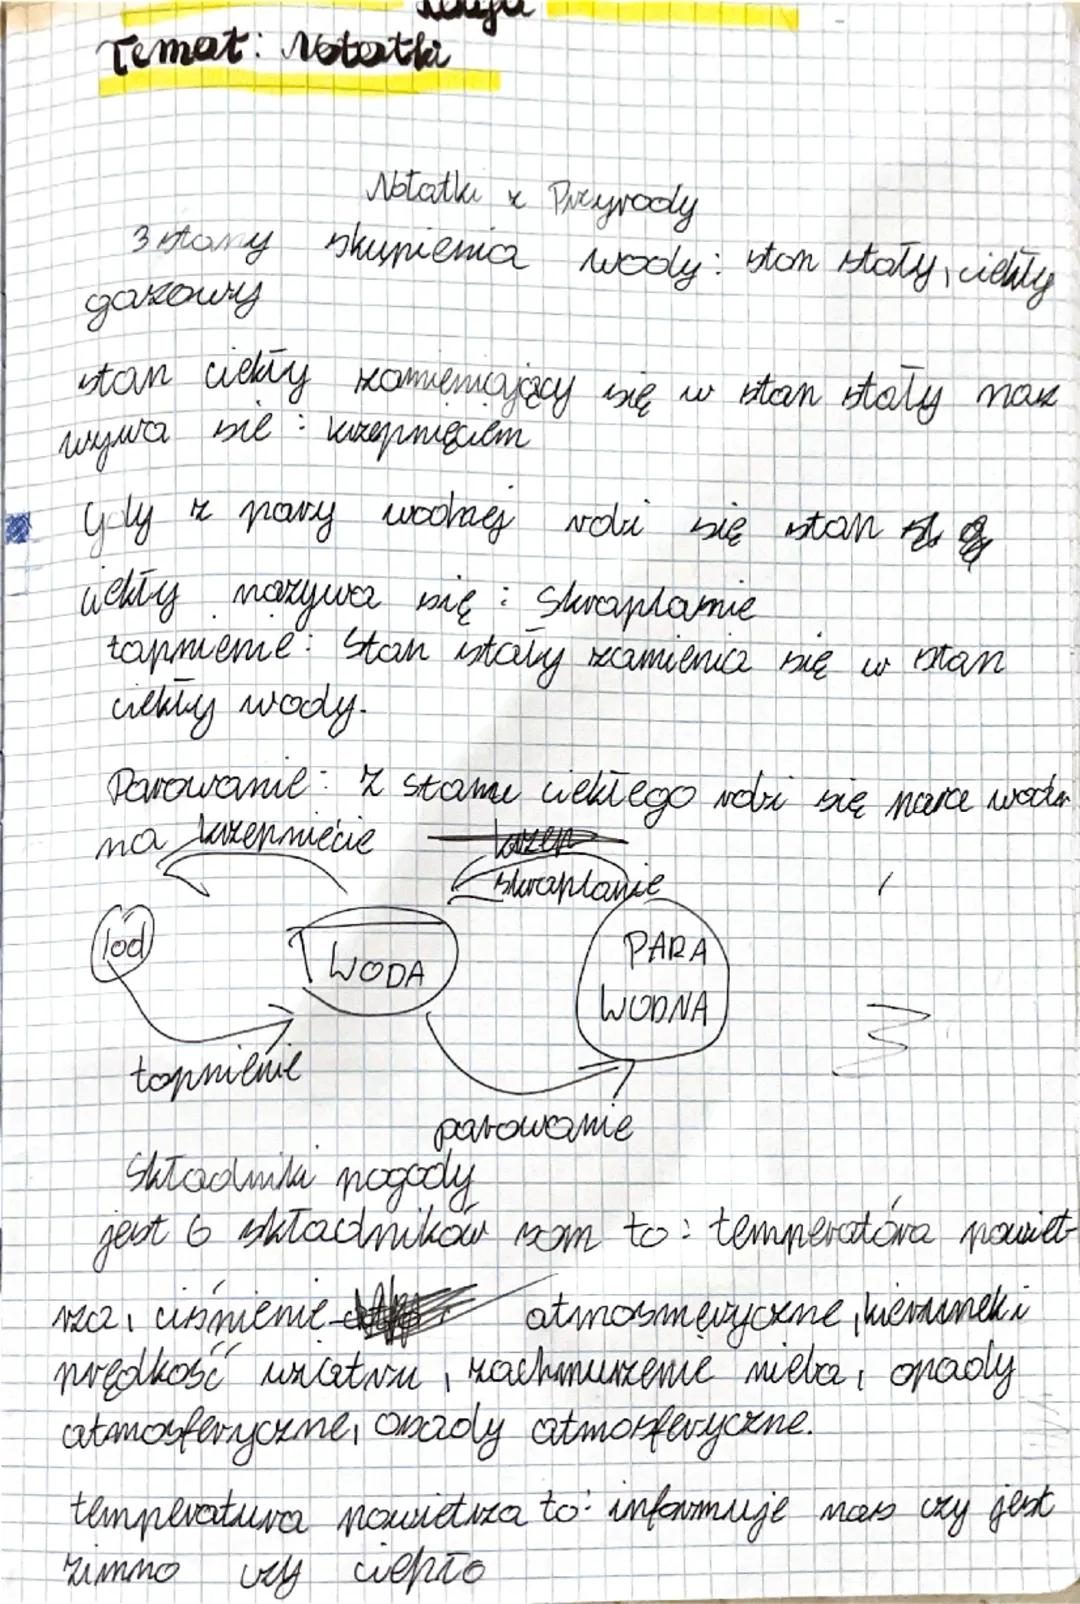 Lekcja
Temat: Notatki
Notatki z Przyrody
3 stany skupienia wody: stan stały, ciekły
gazowy
stan ciekły zamieniający się w stan stały naz
wywa sie: krzepnięciem
Gdy z pary wodnej robi się stan
ciekły nazywa się: Skraplanie
topnienie: Stan stały zamienia się w stan
ciekły wody.
Parowanie: Z stanu ciekłego robi się para wod
na krzepnięcie krzep
skraplanie
lod
WODA
PARA
WODNA
topnienie
parowanie
Składniki pogody
jest 6 składników som to: temperatóra powiet-
rza, ciśnienie atmosmeryczne, kierunek i
prędkość wiatru, zachmurzenie nieba, opady
atmosferyczne, osady atmosferyczne.
temperatura powietrza to: informuje nas czy jest
zimno czy ciepło